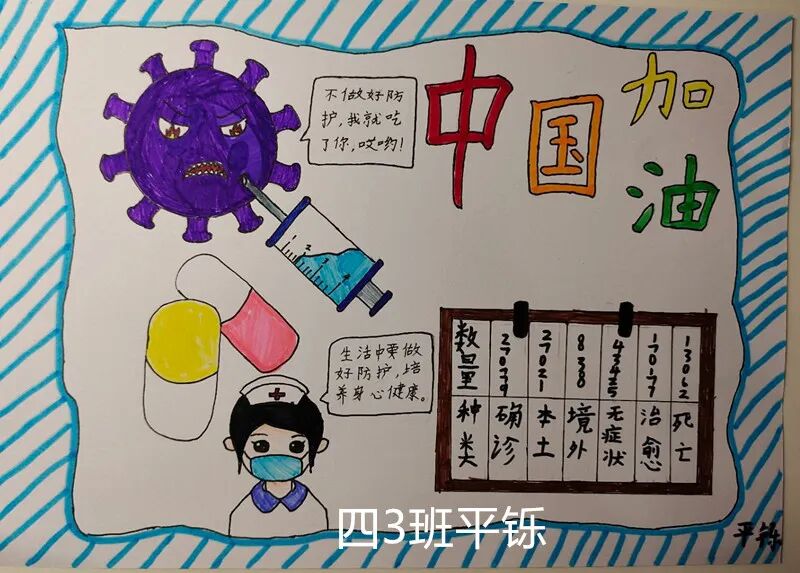 不做好防
护,我就吃
了你,哎哟!
中国加油
生活中要做
好防护,培
养身心健康。
数量 27021 838 43425 13062
种类 确诊 本土 境外 无症状 治愈 死亡
四3班平铄
平铄